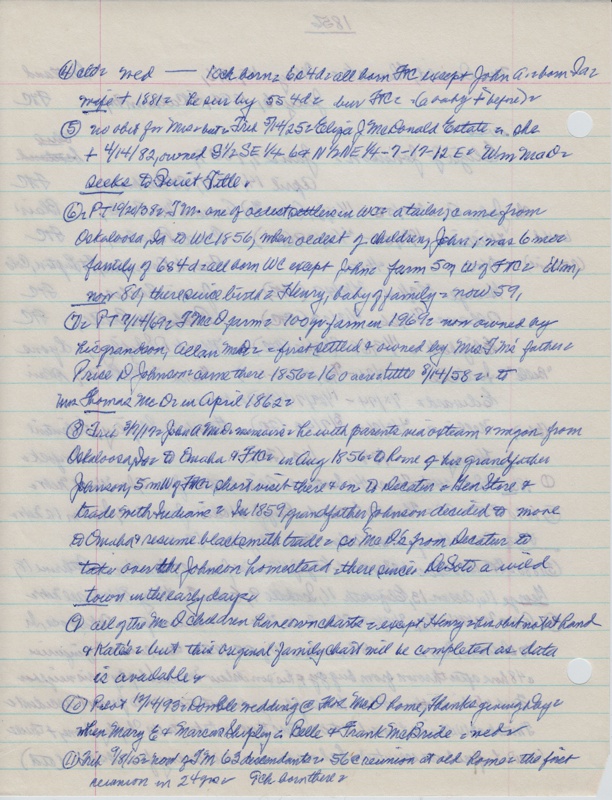 1856
④ aldr wed — 10ch born = 6s4d = all born FtC except John A. = born Ia =
wife + 1881 = he sur by 5s 4d = bur FtC = (6 baby + before) =
⑤ no obit for Mrs = but = Trib 7/14/25 = Eliza J McDonald Estate = she
+ 4/14/82, owned S½ SE¼-6 & N½ NE¼-7-17-12 E = Wm McD =
seeks to Quiet Title =
⑥ = PT 1/20/38 = TM. one of oldest settlers in WC = a tailor, came from
Oskaloosa, Ia to WC 1856, when oldest of children, John, was 6 mos
family of 6s4d = all born WC except John = farm 5m W of FtC = Wm,
now 80, there since birth = Henry, baby of family = now 59,
⑦ = PT 7/14/69 = T McD farm = 100 yr farm in 1969 = now owned by
his grandson, Allan McD = first settled & owned by Mrs T Ms' father =
Price D Johnson = came there 1856 = 160 acres title 8/14/58 = to
Mrs Thomas McD = in April 1862 =
⑧ = Trib John A McD memoirs = he with parents via ox team & wagon from
Oskaloosa, Ia to Omaha & FtC = in Aug 1856 = to home of his grandfather
Johnson, 5 m W of FtC = short visit there & on to Decatur = Gen Store &
trade with Indians = In 1859, grandfather Johnson decided to move
to Omaha & resume blacksmith trade = so Mc D's from Decatur to
take over the Johnson homestead = there since = DeSoto a wild
town in the early days =
9 all of the McD children have own charts = except Henry = his obit not at hand
& Kate's = but this original family chart will be completed as data
is available =
⑩ Double wedding @ Thos McD home, Thanksgiving Day =
when Mary E & Marcus Shipley = Belle & Frank McBride = wed =
⑪ Trib 9/8/15 = row of TM 63 descendants = 56 @ reunion at old home = the first
reunion in 24 yrs = 9ch born there =